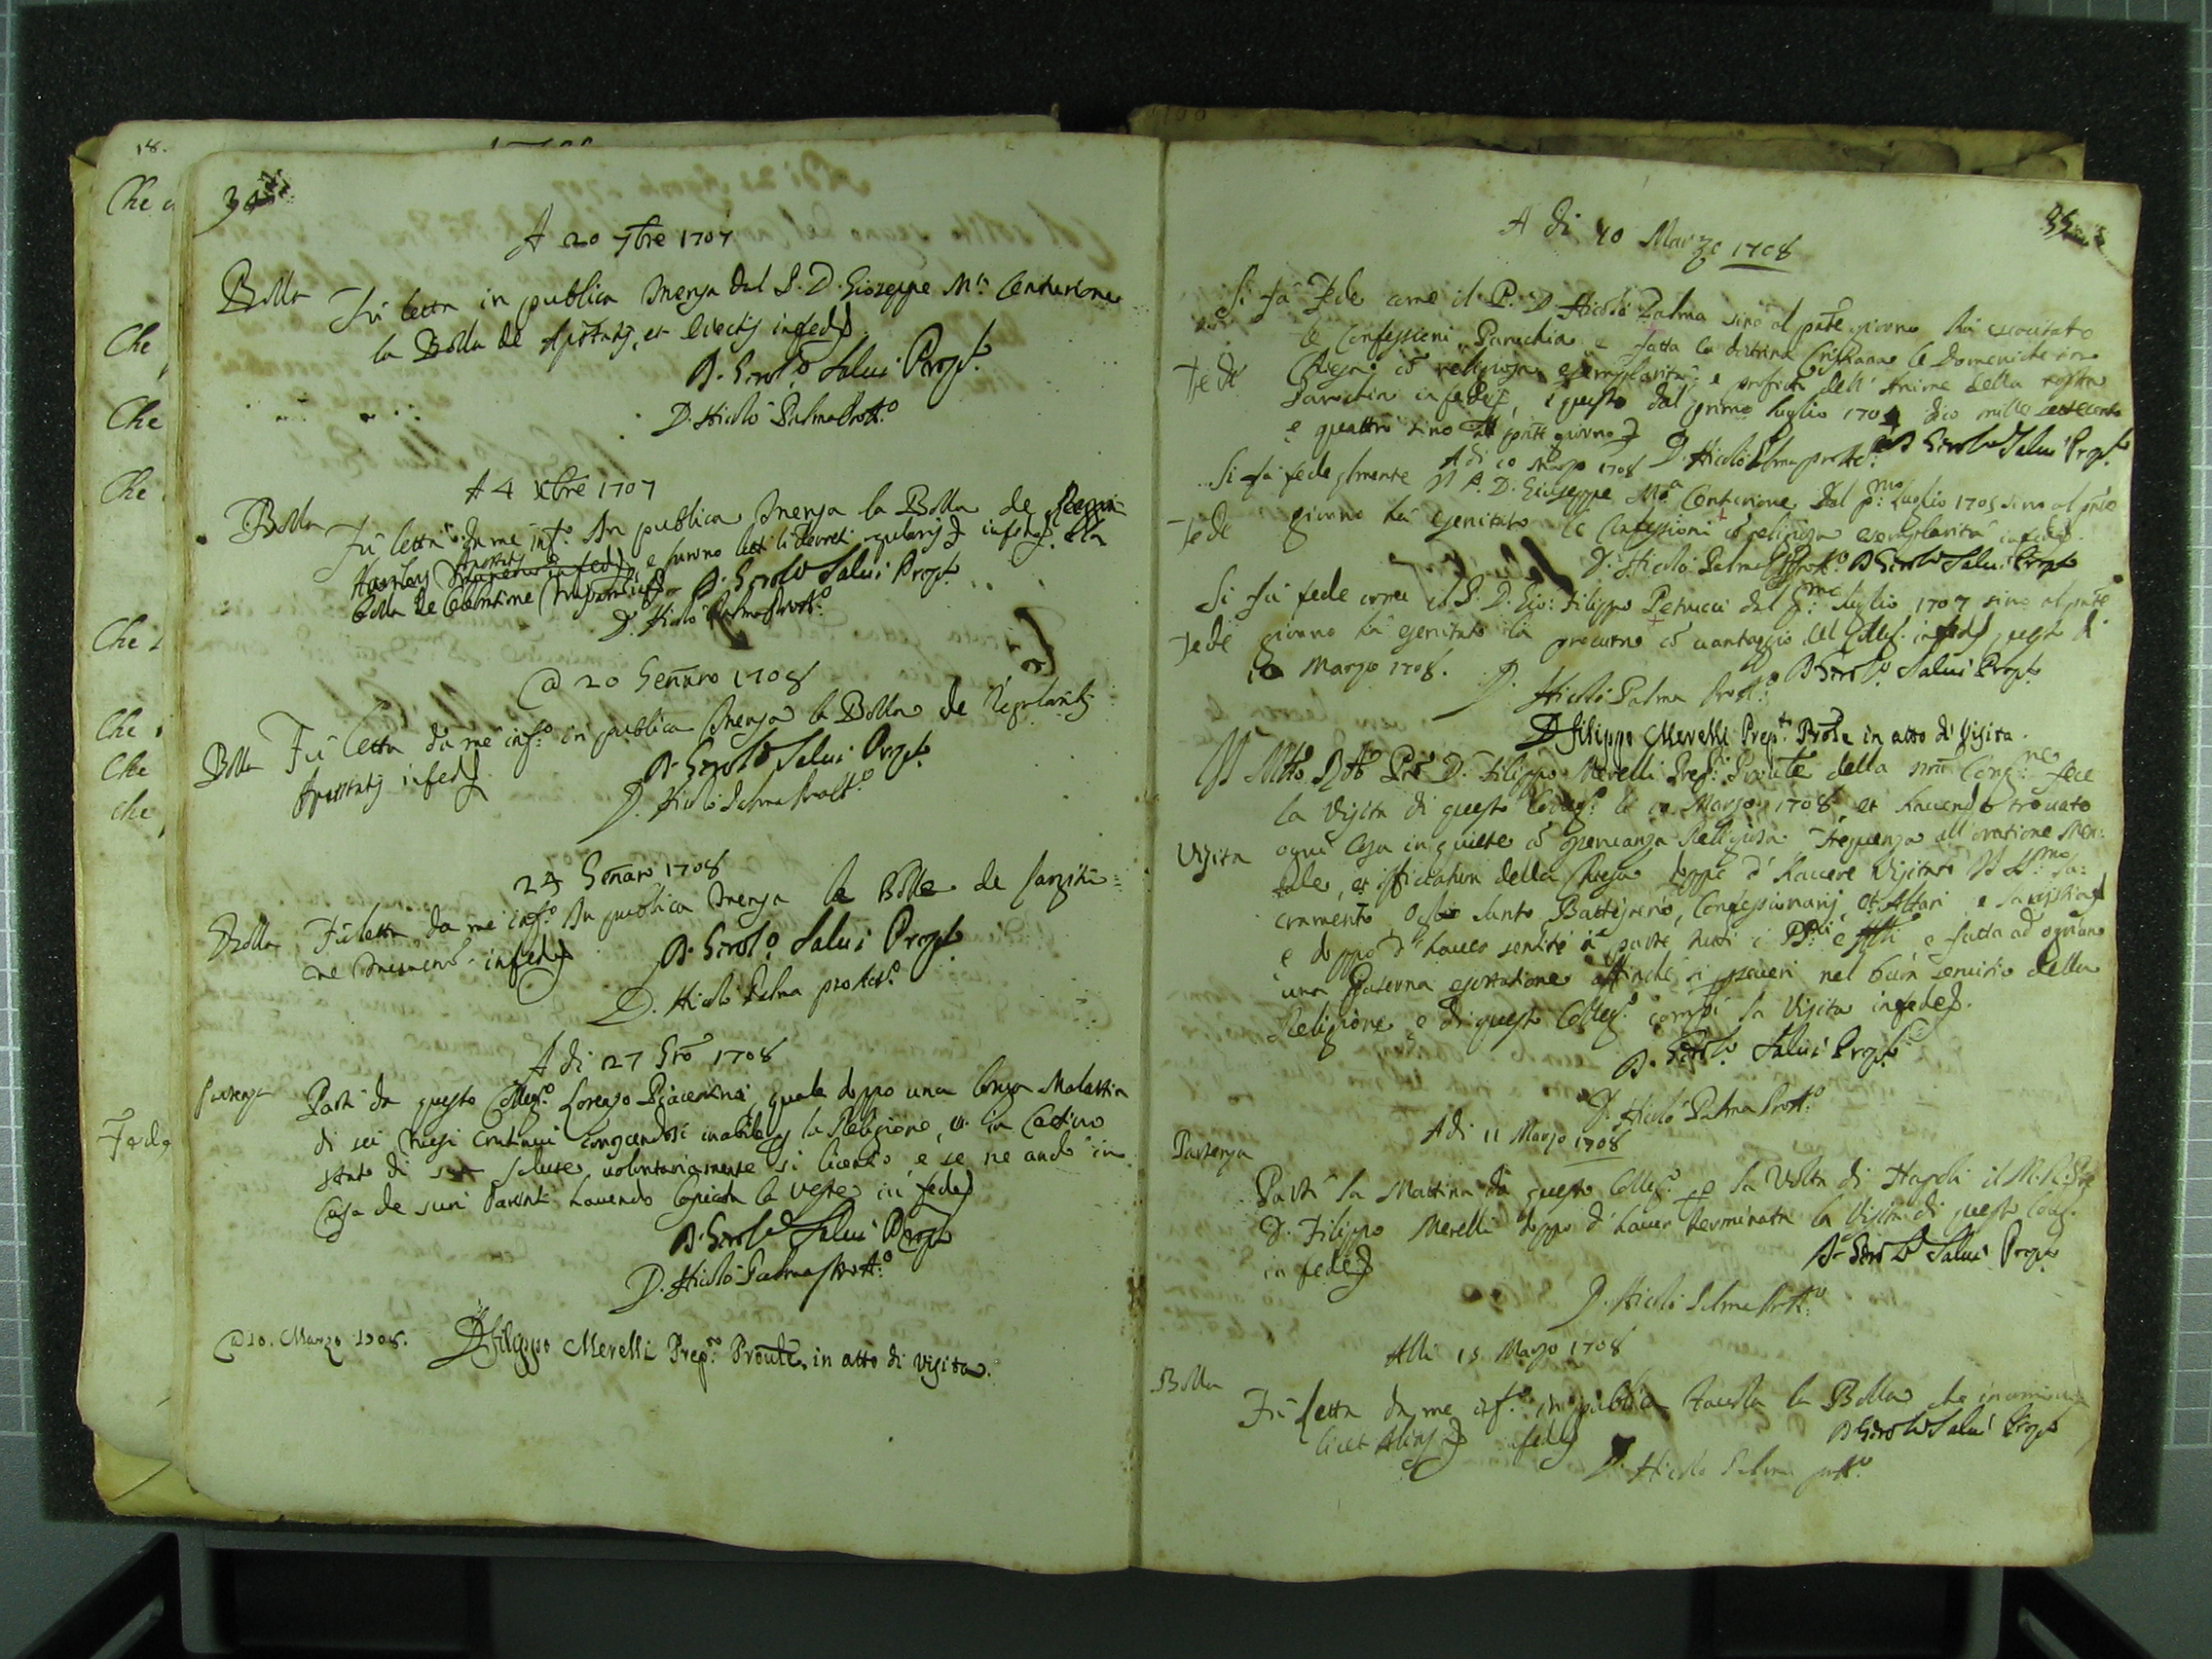 18.
Che
Che
Che
Che
Che
Che
Che
che
Fede
34
A 20 7bre 1707
Bolla
Fù letta in publica Mensa dal P. D. Gioseppe M.a Centurione
la Bolla de Apostatis, et Eiectis in fede
D. Girol.o Salui Prep.to
D. Nicolò Palma Att.o
A 4 Xbre 1707
Bolla
Fù letta da me inf.o In publica Mensa la Bolla de
e furono letti li decreti in fede
D. Girol.o Salui Prep.to
D. Nicolò Palma Att.o
@ 20 Genaro 1708
Bolla
Fù letta da me inf.o in publica Mensa la Bolla de Regolarib
Apostatis in fede
D. Girol.o Salui Prep.to
D. Nicolò Palma Att.o
24 Genaro 1708
Bolla
Fù letta da me inf.o In publica Mensa la Bolla de largitio=
ne Munerum in fede
D. Girol.o Salui Prep.to
D. Nicolò Palma pro Att.o
A di 27 Gro 1708
Partenza
Partì da questo Colleg.o Lorenzo Piacentini, quale doppo una longa Malattia
di sei Mesi continui conoscendosi inabile la Religione, et in Cattivo
stato di sua salute, volontariamente si licentiò e se ne andò in
Casa de suoi Parenti havendo lasciata la veste in fede
D. Girol.o Salui Prep.to
D. Nicolò Palma Att.o
@ 10. Marzo 1708.
D. Filippo Merelli Prep.to Prou.le in atto di visita.
35
A di 10 Marzo 1708
Si fà Fede come il P. D. Nicolò Palma sino al pnte giorno hà esercitato
le Confessioni, Parochia e fatta la dottrina Cristiana le Domeniche in
Fede
Chiesa cō religiosa esemplarità, e profitto dell' Anime della nostra
Parochia in fede, e questo dal primo luglio 1704 dico mille settecento
e quattro sino al pnte giorno
D. Nicolò Palma pro Att.o
D. Girol.o Salui Prep.to
A di 10 Marzo 1708
Si fà fede qlmente Il P. D. Gioseppe M.a Centurione dal p.mo luglio 1705 sino al pnte
Fede
giorno hà esercitato le Confessioni cō religiosa esemplarità in fede
D. Nicolò Palma Att.o D. Girol.o Salui Prep.to
Si fà fede come il P. D. Gio: Filippo Petrucci dal p.mo luglio 1707 sino al pnte
Fede
giorno hà esercitato la procura cō vantaggio del Colleg. in fede questo di
10 Marzo 1708.
D. Girol.o Salui Prep.to
D. Nicolò Palma Att.o
D. Filippo Merelli Prep.to Prou.le in atto di Visita.
Il M.to R.do Pre D. Filippo Merelli Prep.to Prouñle della nrā Cong.ne fece
la Visita di questo Colleg.o li 10 Marzo 1708, et havendo trovato
Visita
ogni cosa in quiete cō osservanza Religiosa Frequenza all' oratione Men:
tale, et officiatura della Chiesa doppo d' havere Visitato Il SS.mo Sa:
cramento Oglio Santo Battisterio, Confessionarij, et Altari e Sacristia
e doppo d' haver sentito à parte tutti i PP.ri e flli e fatta ad ognuno
una Paterna esortatione affinchè si perseveri nel buon servitio della
Religione e di questo Colleg.o compì la Visita in fede.
D. Girol.o Salui Prep.to
D. Nicolò Palma Att.o
A di 11 Marzo 1708
Partenza
Partì la Mattina da questo Colleg.o p la Volta di Napoli il M. R. Pre
D. Filippo Merelli doppo d' haver terminata la Visita di questo Colleg.
in fede
D. Girol.o Salui Prep.to
D. Nicolò Palma Att.o
Alli 15 Marzo 1708
Bolla
Fù letta da me inf.o in publica Tavola la Bolla che incomincia
licet Alias in fede
D. Girol.o Salui Prep.to
D. Nicolò Palma Att.o